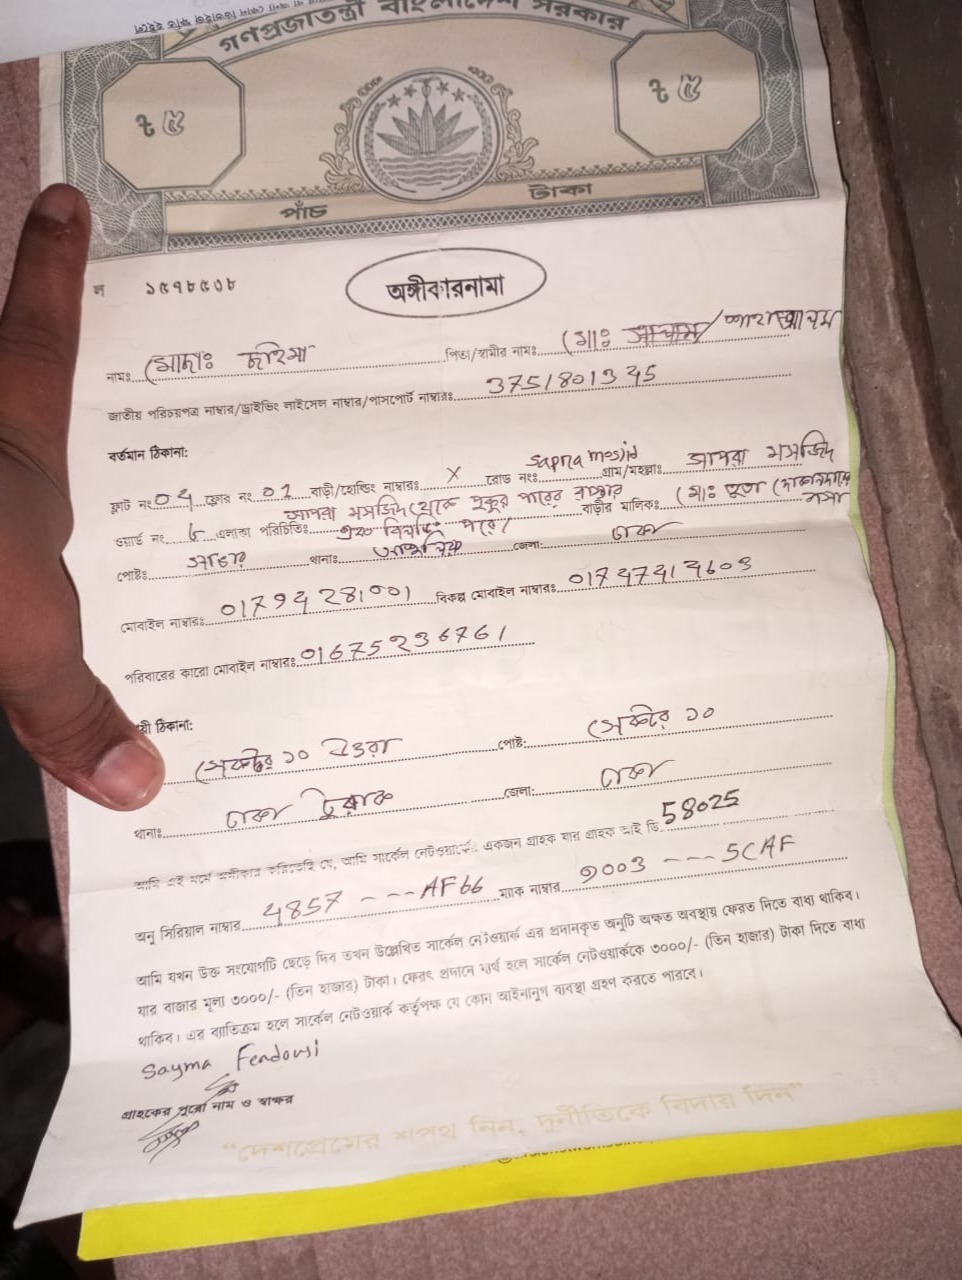 গণপ্রজাতন্ত্রী বাংলাদেশ সরকার
৳ ৫ ৳ ৫
পাঁচ টাকা
ল ১৫৭৮৫০৮
অঙ্গীকারনামা
নামঃ মোছাঃ পিতা/স্বামীর নামঃ মোঃ
জাতীয় পরিচয়পত্র নাম্বার/ড্রাইভিং লাইসেন্স নাম্বার/পাসপোর্ট নাম্বারঃ 3751801345
বর্তমান ঠিকানা:
ফ্লাট নং 04 ফ্লোর নং 01 বাড়ী/হোল্ডিং নাম্বারঃ X রোড নংঃ sapra mosjid গ্রাম/মহল্লাঃ সাপরা মসজিদ
ওয়ার্ড নং ৬ এলাকা পরিচিতিঃ সাপরা মসজিদ থেকে পুকুর পারের রাস্তায় বাড়ীর মালিকঃ মোঃ
পোষ্টঃ সাভার থানাঃ জেলা: ঢাকা
মোবাইল নাম্বারঃ 01794281001 বিকল্প মোবাইল নাম্বারঃ
পরিবারের কারো মোবাইল নাম্বারঃ 01675236761
য়ী ঠিকানা:
সেক্টর ১০ উত্তরা পোষ্ট: সেক্টর ১০
থানাঃ ঢাকা তুরাগ জেলা: ঢাকা
আমি এই মর্মে অঙ্গীকার করিতেছি যে, আমি সার্কেল নেটওয়ার্কের একজন গ্রাহক যার গ্রাহক আই ডি 58025
অনু সিরিয়াল নাম্বার 4857 --- AF66 ম্যাক নাম্বার 9003 --- 5CAF
আমি যখন উক্ত সংযোগটি ছেড়ে দিব তখন উল্লেখিত সার্কেল নেটওয়ার্ক এর প্রদানকৃত অনুটি অক্ষত অবস্থায় ফেরত দিতে বাধ্য থাকিব।
যার বাজার মূল্য ৩০০০/- (তিন হাজার) টাকা। ফেরৎ প্রদানে ব্যর্থ হলে সার্কেল নেটওয়ার্ককে ৩০০০/- (তিন হাজার) টাকা দিতে বাধ্য
থাকিব। এর ব্যতিক্রম হলে সার্কেল নেটওয়ার্ক কর্তৃপক্ষ যে কোন আইনানুগ ব্যবস্থা গ্রহণ করতে পারবে।
Sayma Ferdousi
গ্রাহকের পুরো নাম ও স্বাক্ষর
"দেশপ্রেমের শপথ নিন, দুর্নীতিকে বিদায় দিন"